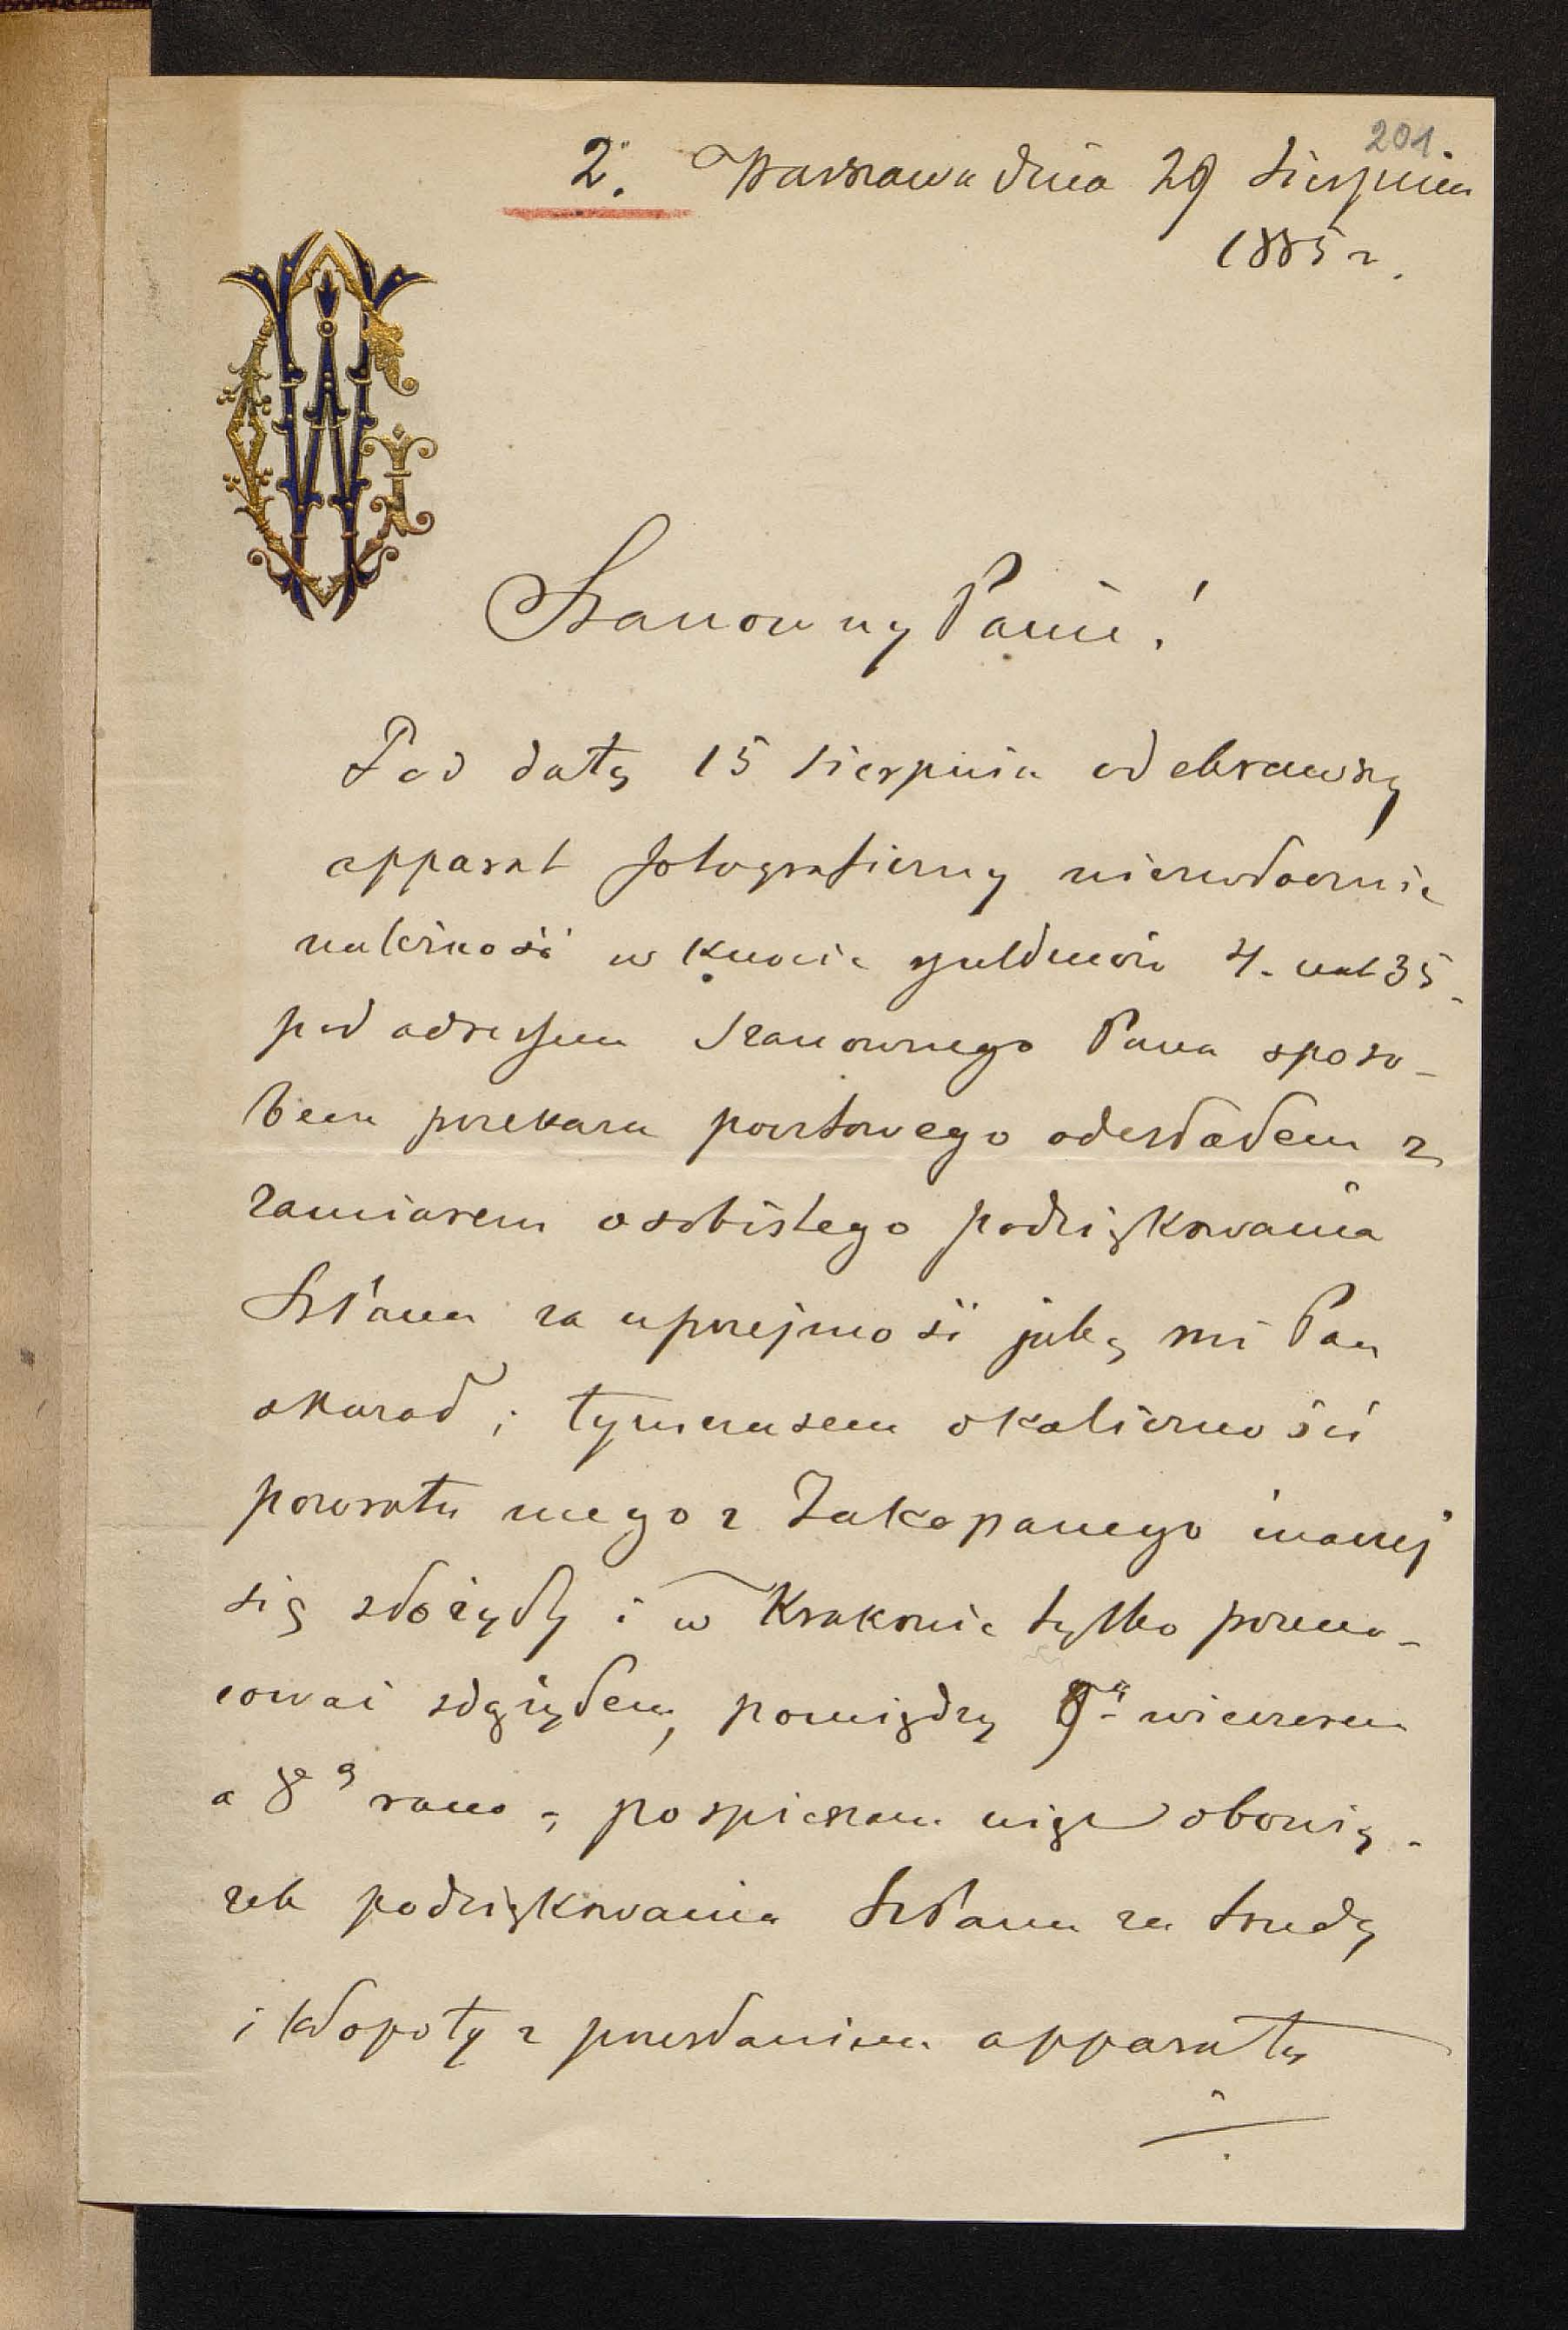 201.
2. Warszawa dnia 29 Sierpnia
1885 r.
Szanowny Panie!
Pod datą 15 Sierpnia odebrawszy
apparat fotograficzny niezwłocznie
należność w kwocie guldenów 4. cnt 35.
pod adressem Szanownego Pana sposo-
bem przekazu pocztowego odesłałem z
zamiarem osobistego podziękowania
SzPanu za uprzejmość jaką mi Pan
okazał; tymczasem okoliczności
powrotu mego z Zakopanego inaczej
się złożyły i w Krakowie tylko przeno-
cować zdążyłem, pomiędzy 9ą wieczorem
a 8ą rano; pospieszam więc obowią-
zek podziękowania SzPanu za trudy
i kłopoty z przesłaniem apparatu